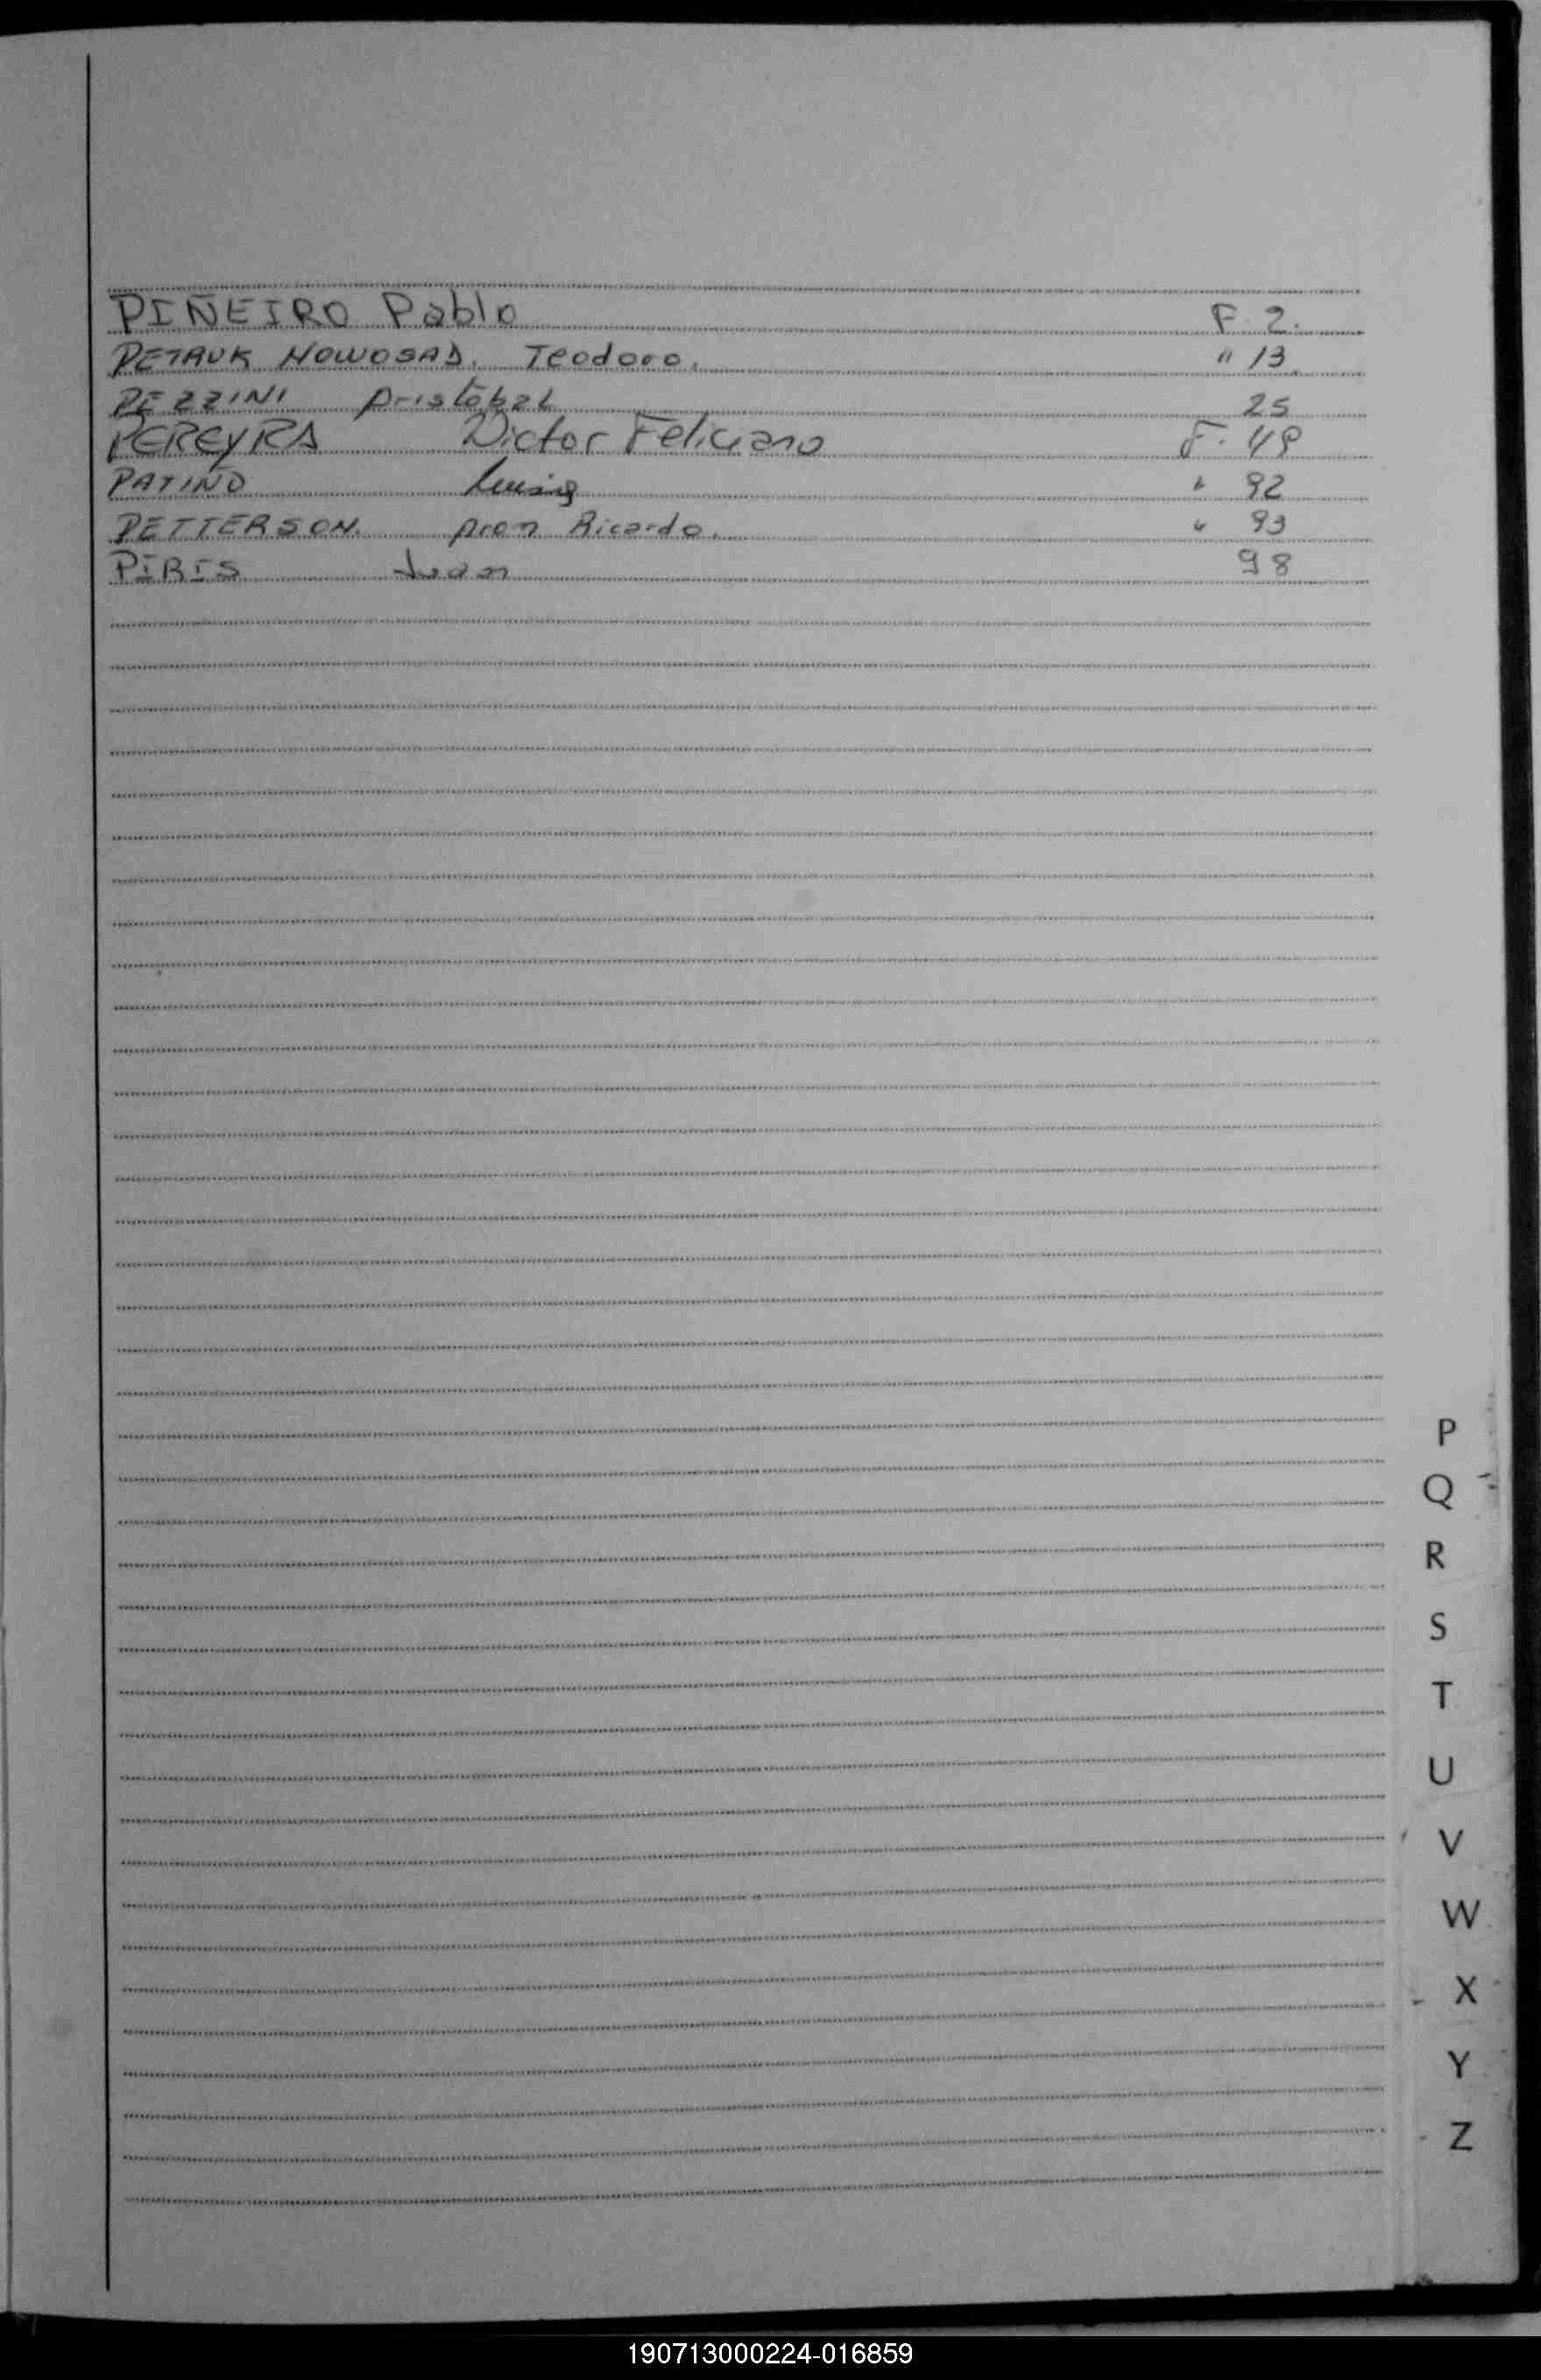 PIÑEIRO Pablo F. 2.
PETRUK NOWOSAD. Teodoro. " 13.
PEZZINI 25
PEREYRA Victor Feliciano F. 49
PATIÑO " 92
PETTERSON. Ricardo. " 93
PIRIS Juan 98
P
Q
R
S
T
U
V
W
X
Y
Z
190713000224-016859